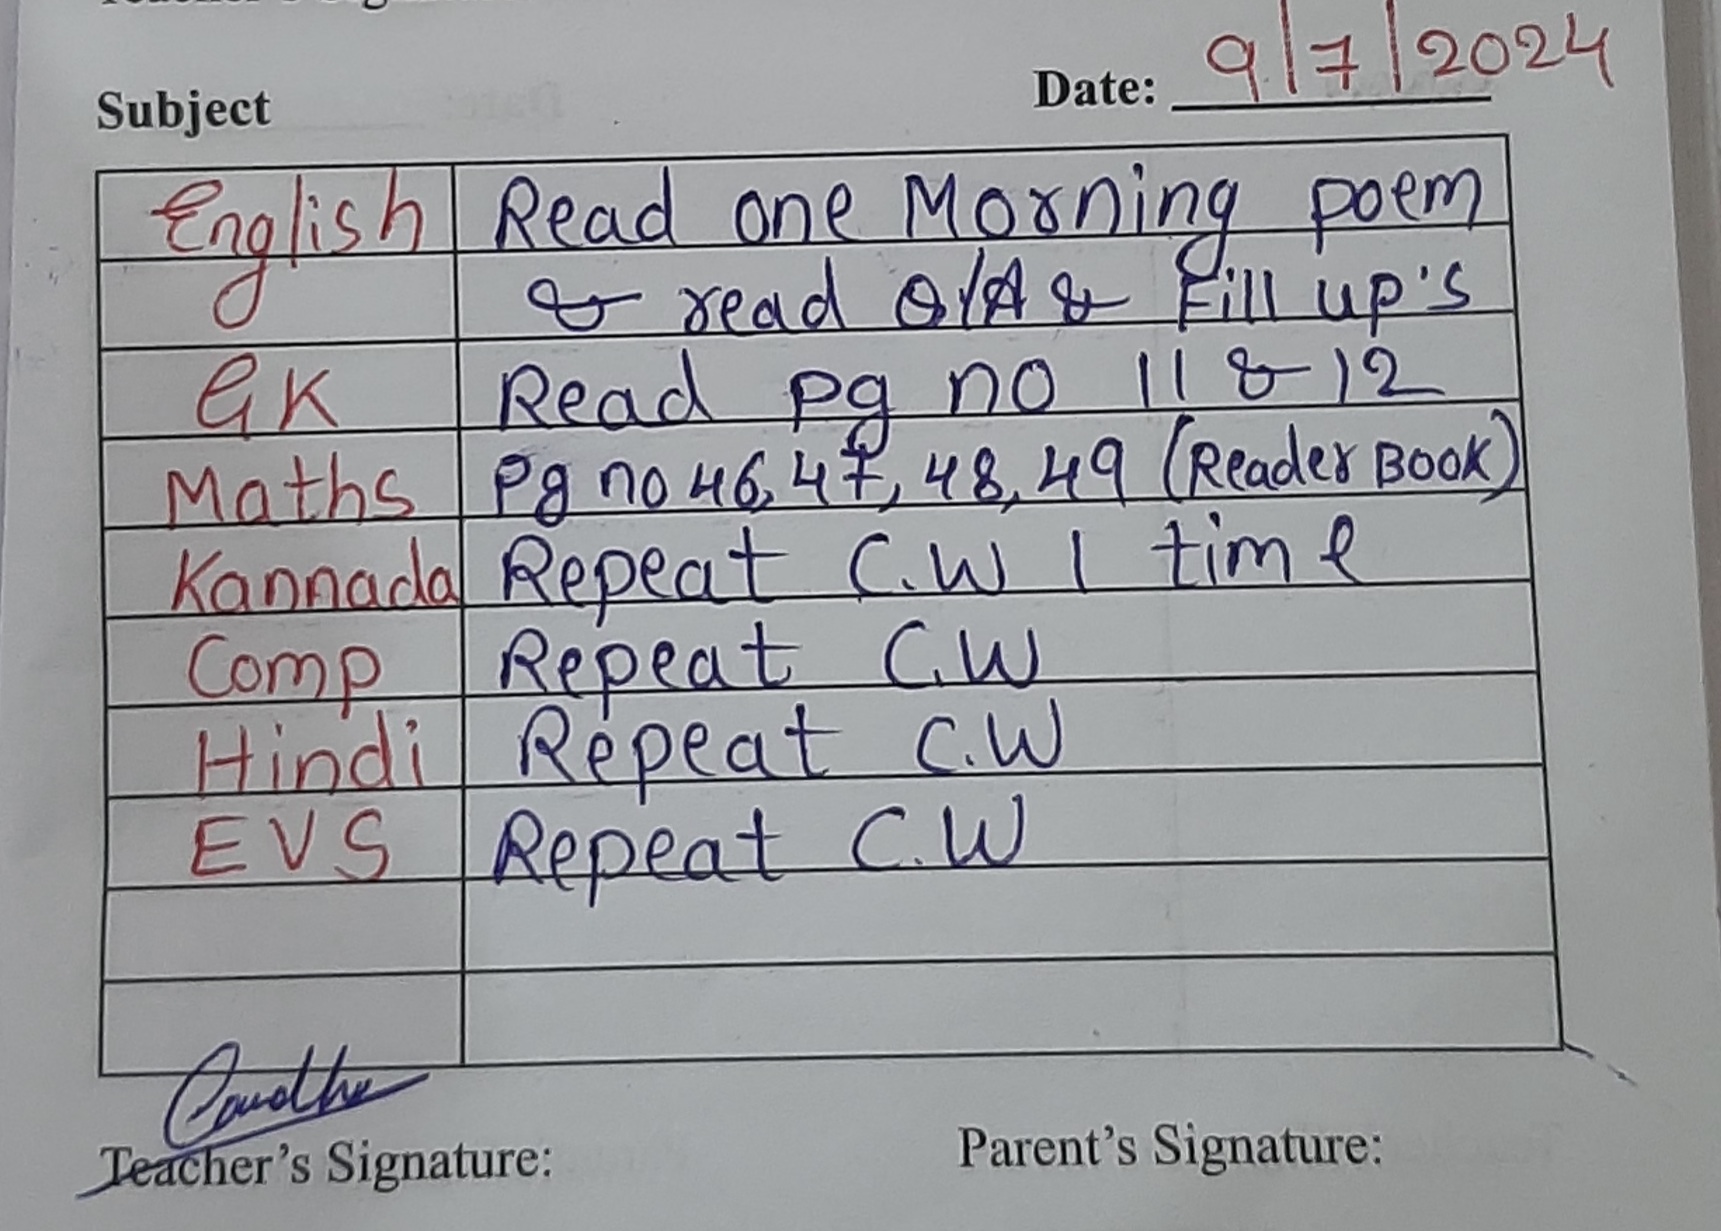 Date: 9/7/2024
Subject
English Read one Morning poem
& read Q/A & Fill up's
GK Read pg no 11 & 12
Maths Pg no 46, 47, 48, 49 (Reader Book)
Kannada Repeat C.W 1 time
Comp Repeat C.W
Hindi Repeat C.W
EVS Repeat C.W
Teacher's Signature: Parent's Signature: